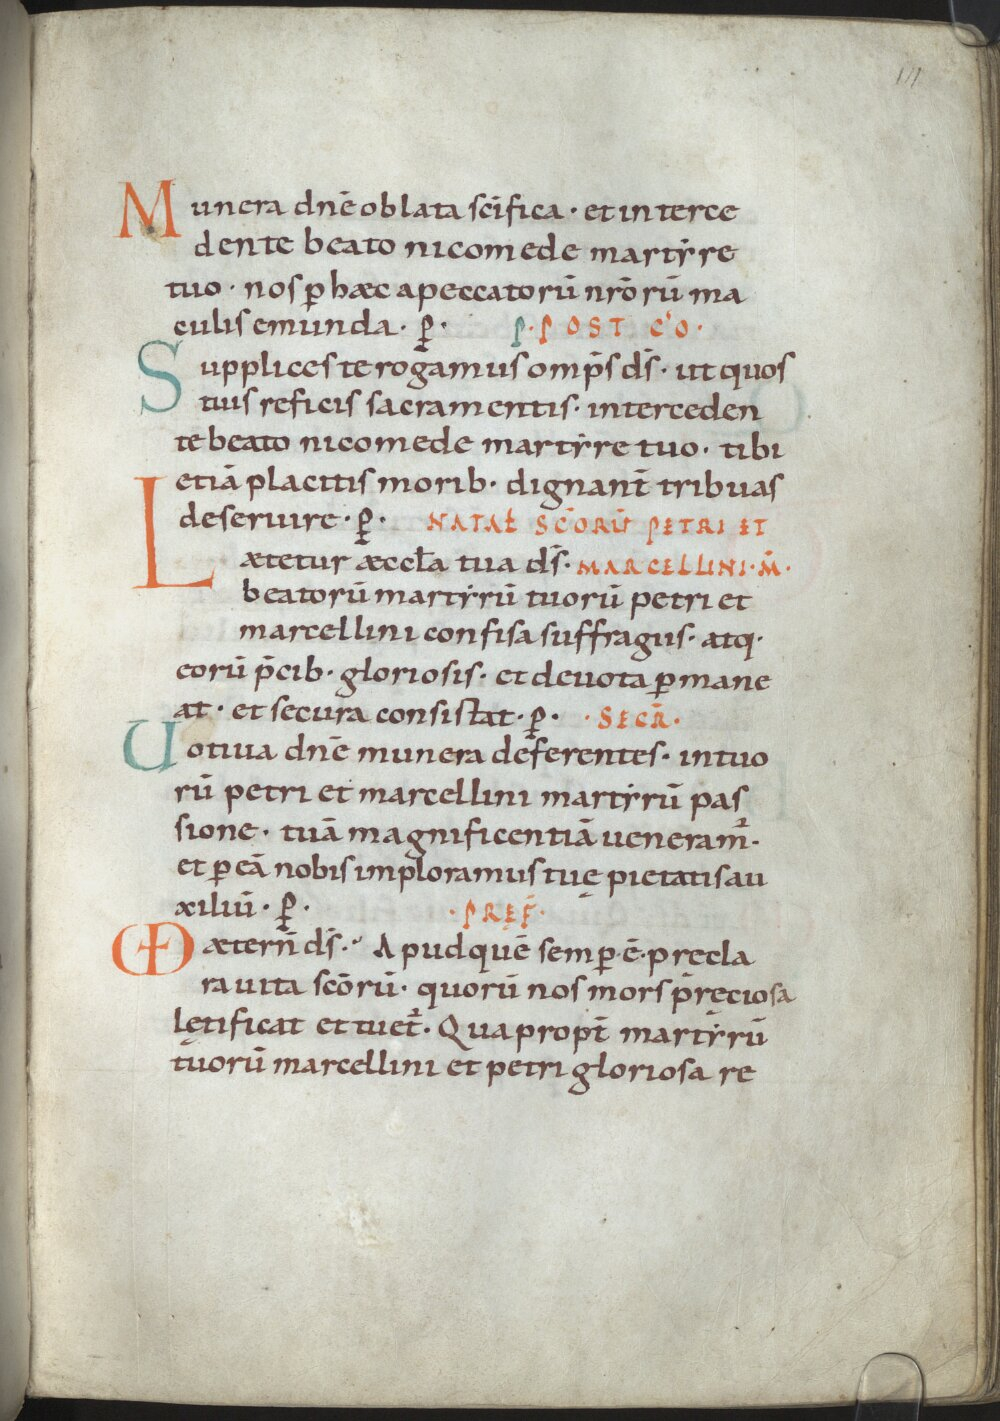 Munera dnē oblata sc̄ifica · et interce
dente beato nicomede martẏre
tuo · nos p̲ hæc apeccatorū nr̄orū ma
culis emunda · p̲ · p · POST C'O ·
Supplices te rogamus omp̄s dš · ut quos
tuis reficis sacramentis · interceden
te beato nicomede martẏre tuo · tibi
etiā placitis morib · dignant̄ tribuas
deseruire · p̲ · NATAƚ SC̄ORŪ PETRI ET
Lætetur æccƚa tua dš · MARCELLINI · M̄ ·
beatorū martẏrū tuorū petri et
marcellini confisa suffragiis · atq ·
eorū p̄cib · gloriosis · et deuota p̲mane
at · et secura consistat · p̲ · · SECR̄ ·
Uotiua dnē munera deferentes · intuo
rū petri et marcellini martẏrū pas
sione · tuā magnificentiā ueneram̄ ·
et p̲ eā nobis imploramus tuę pietatis au
xiliū · p̲ · · PREF̄ ·
æterñ dš · Apudquē semp̲ · ē · precla
ra uita sc̄orū · quorū nos mors p̄ręciosa
lętificat et tuet̄ · Quapropt̄ martẏrū
tuorū marcellini et petri gloriosa re